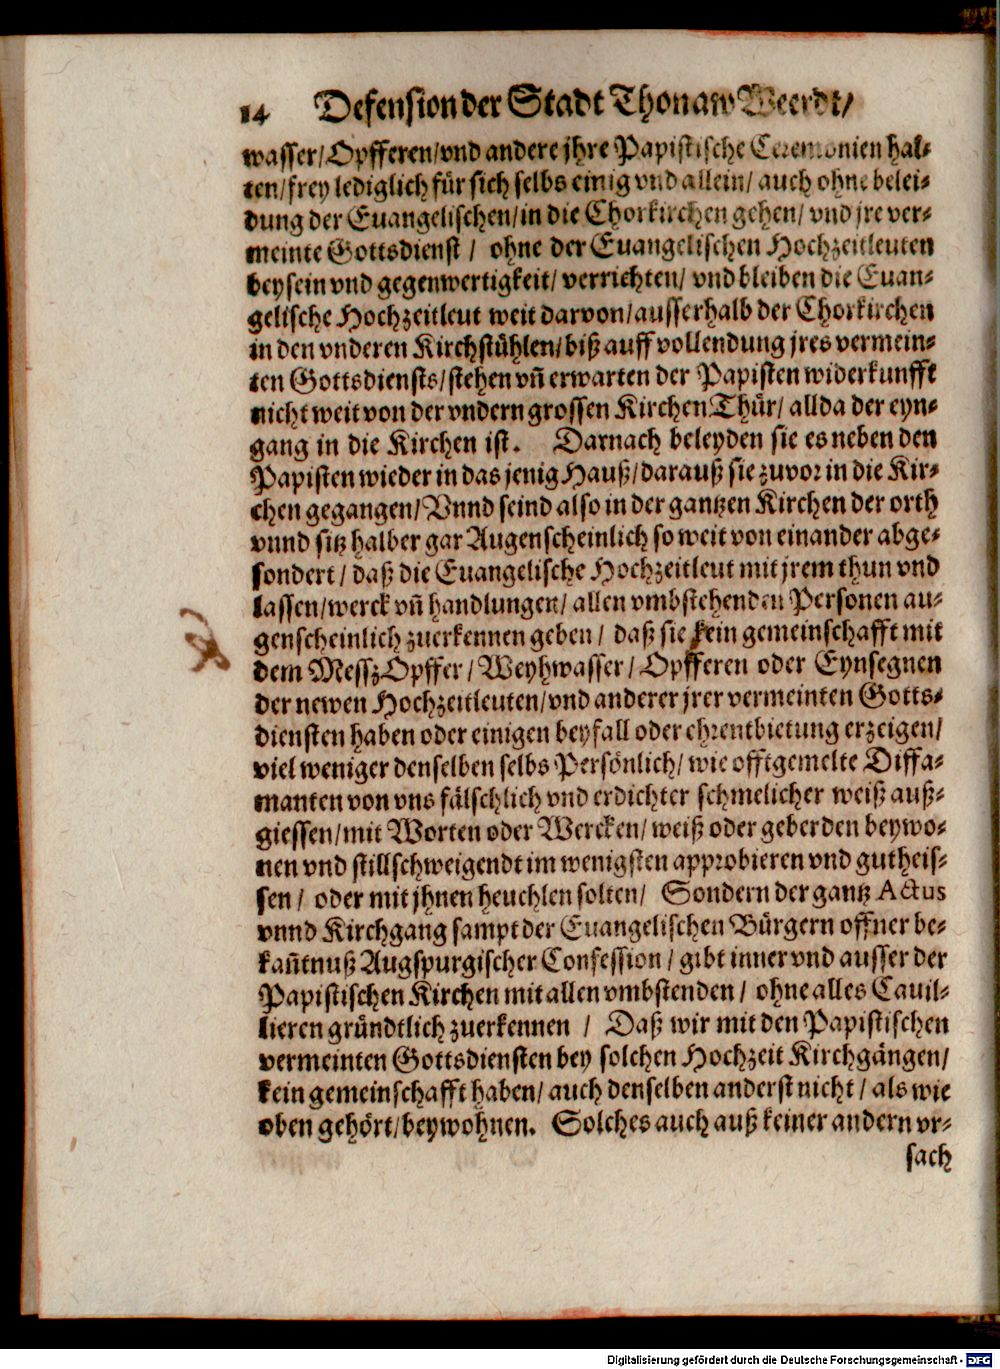 14 Defension der Stadt Thonaw Weerdt/
wasser/Opfferen/vnd andere jhre Papistische Ceremonien hal-
ten/frey lediglich für sich selbs einig vnd allein/ auch ohne belei-
dung der Euangelischen/in die Chorkirchen gehen/ vnd jre ver-
meinte Gottsdienst / ohne der Euangelischen Hochzeitleuten
beysein vnd gegenwertigkeit/ verrichten/ vnd bleiben die Euan-
gelische Hochzeitleut weit darvon/ausserhalb der Chorkirchen
in den vnderen Kirchstühlen/biß auff vollendung jres vermein-
ten Gottsdiensts/stehen vñ erwarten der Papisten widerkunfft
nicht weit von der vndern grossen Kirchen Thür/ allda der eyn-
gang in die Kirchen ist. Darnach beleyden sie es neben den
Papisten wieder in das jenig Hauß/darauß sie zuvor in die Kir-
chen gegangen/Vnnd seind also in der gantzen Kirchen der orth
vnnd sitz halber gar Augenscheinlich so weit von einander abge-
sondert / daß die Euangelische Hochzeitleut mit jrem thun vnd
lassen/werck vñ handlungen/ allen vmbstehenden Personen au-
genscheinlich zuerkennen geben / daß sie kein gemeinschafft mit
dem MesszOpffer/Weyhwasser/Opfferen oder Eynsegnen
der newen Hochzeitleuten/vnd anderer jrer vermeinten Gotts-
diensten haben oder einigen beyfall oder ehrentbietung erzeigen/
viel weniger denselben selbs Persönlich/ wie offtgemelte Diffa-
manten von vns fälschlich vnd erdichter schmelicher weiß auß-
giessen/mit Worten oder Wercken/ weiß oder geberden beywo-
nen vnd stillschweigendt im wenigsten approbieren vnd gutheis-
sen / oder mit jhnen heuchlen solten/ Sondern der gantz Actus
vnnd Kirchgang sampt der Euangelischen Bürgern offner be-
kañtnuß Augspurgischer Confession / gibt inner vnd ausser der
Papistischen Kirchen mit allen vmbstenden / ohne alles Cauil-
lieren gründtlich zuerkennen / Daß wir mit den Papistischen
vermeinten Gottsdiensten bey solchen Hochzeit Kirchgängen/
kein gemeinschafft haben/ auch denselben anderst nicht / als wie
oben gehört/beywohnen. Solches auch auß keiner andern vr-
sach
Digitalisierung gefördert durch die Deutsche Forschungsgemeinschaft - DFG